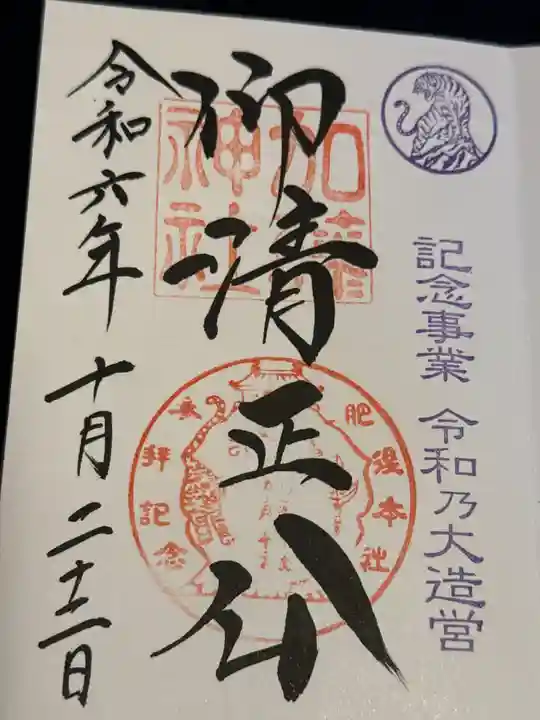 記念事業 令和乃大造営
加藤神社
仰清正公
拝記念
令和六年 十月二十二日